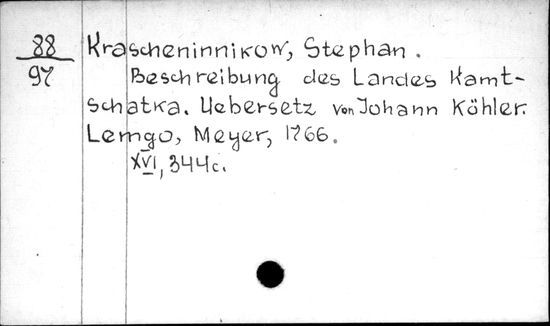 88
97
Krascheninnikow, Stephan.
Beschreibung des Landes Kamt-
schatka. Uebersetz von Johann Köhler.
Lemgo, Meyer, 1766.
XVI, 344c.